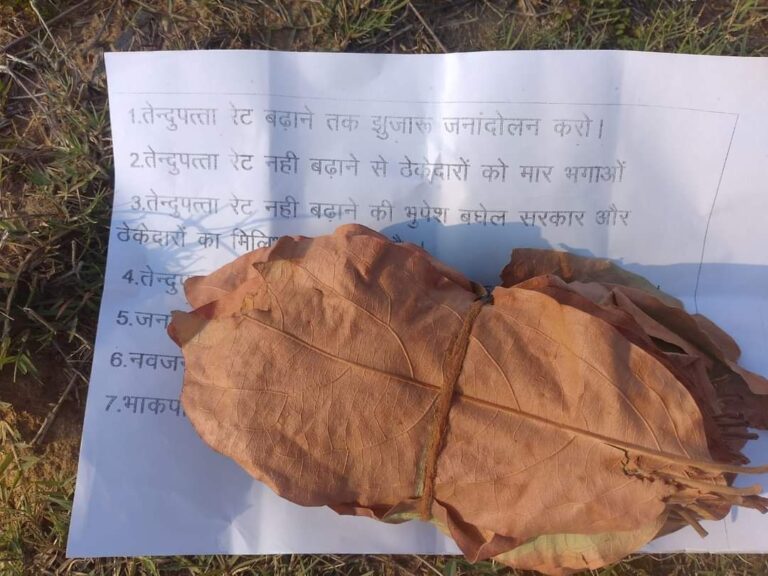 1.तेन्दुपत्ता रेट बढ़ाने तक झुजारू जनांदोलन करो।
2.तेन्दुपत्ता रेट नही बढ़ाने से ठेकेदारों को मार भगाओं
3.तेन्दुपत्ता रेट नही बढ़ाने की भुपेश बघेल सरकार और
ठेकेदारों का
4.
5.
6.
7.